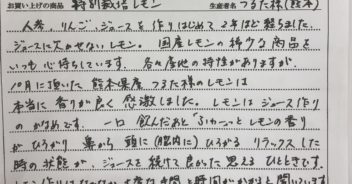 お買い上げの商品 特別栽培レモン 生産者名 つるた様(熊本)
人参、りんご、ジュースを作りはじめて2年ほど経ちました。
ジュースに欠かせないレモン。国産レモンの稀少な商品を
いつも心待ちしています。各々産地の特性がありますが、
10月に頂いた熊本県産つるた様のレモンは
本当に香りが良く感激しました。レモンはジュース作り
のかなめです。一口飲んだあと「ふわ〜っ」とレモンの香り
がひろがり鼻から頭に(脳内に)ひろがるリラックスした
時の状態が、ジュースを続けて良かった思えるひとときです。
レモン作りはなかなか大変な手間と時間がかかると聞いています